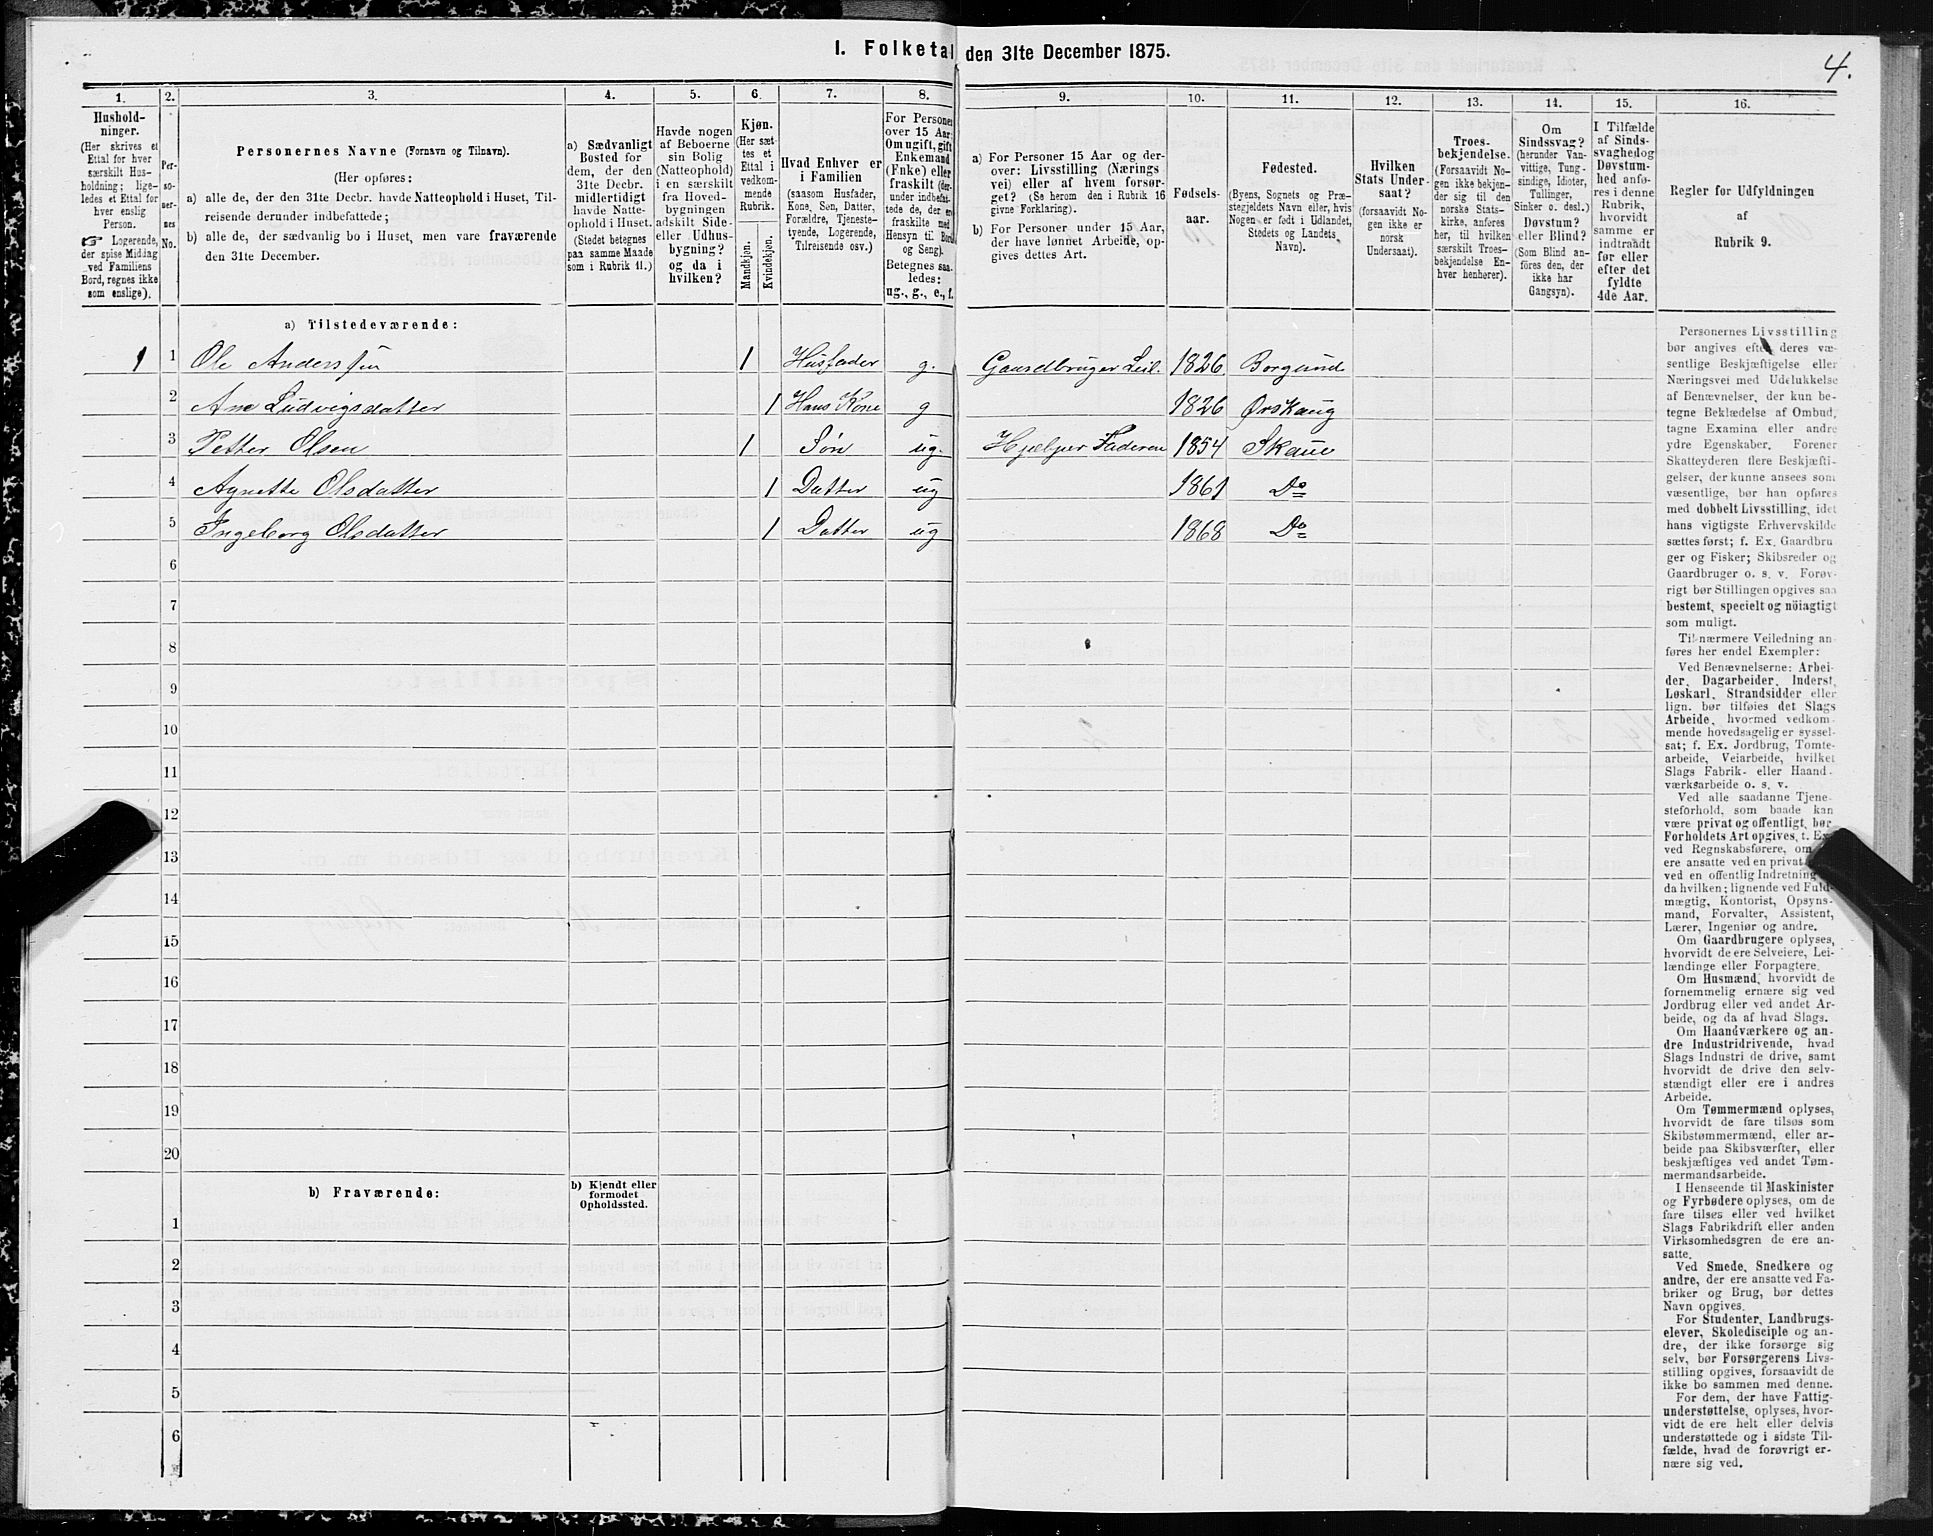 I. Folketal den 31te December 1875.
4.
1.
Hushold-
ninger.
(Her skrives et
Ettal for hver
særskilt Hus-
holdning; lige-
ledes et Ettal for
hver enslig
Person.
☞ Logerende,
der spise Middag
ved Familiens
Bord, regnes ikke
som enslige).
2.
Per-
so-
ner-
nes
No.
3.
Personernes Navne (Fornavn og Tilnavn).
(Her opføres:
a) alle de, der den 31te Decbr. havde Natteophold i Huset, Til-
reisende derunder indbefattede;
b) alle de, der sædvanlig bo i Huset, men vare fraværende
den 31te December.
4.
a) Sædvanligt
Bosted for
dem, der den
31te Decbr.
midlertidigt
havde Natte-
ophold i Huset.
(Stedet betegnes
paa samme Maade
som i Rubrik 11.)
5.
Havde nogen
af Beboerne
sin Bolig
(Natteophold)
i en særskilt
fra Hoved-
bygningen
adskilt Side-
eller Udhus-
bygning?
og da i
hvilken?
6.
Kjøn.
(Her sæt-
tes et
Ettal i
vedkom-
mende
Rubrik.
Mandkjøn.
Kvindekjøn.
7.
Hvad Enhver er
i Familien
(saasom Husfader,
Kone, Søn, Datter,
Forældre, Tjeneste-
tyende, Logerende,
Tilreisende osv.)
8.
For Personer
over 15 Aar:
Om ugift, gift
Enkemand
(Enke) eller
fraskilt (der-
under indbefat-
tede de, der ere
fraskilte med
Hensyn til Bord
og Seng).
Betegnes saa-
ledes:
ug., g., e., f.
9.
a) For Personer 15 Aar og der-
over: Livsstilling (Nærings-
vei) eller af hvem forsør-
get? (Se herom den i Rubrik 16
givne Forklaring).
b) For Personer under 15 Aar,
der have lønnet Arbeide, op-
gives dettes Art.
10.
Fødsels-
aar.
11.
Fødested.
(Byens, Sognets og Præ-
stegjeldets Navn eller, hvis
Nogen er født i Udlandet,
Stedets og Landets
Navn).
12.
Hvilken
Stats Under-
saat?
(forsaavidt No-
gen ikke er
norsk
Undersaat).
13.
Troes-
bekjendelse.
(Forsaavidt No-
gen ikke bekjen-
der sig til den
norske Stats-
kirke, anføres
her, til hvilken
særskilt Troes-
bekjendelse En-
hver henhører).
14.
Om
Sindssvag?
(herunder Van-
vittige, Tung-
sindige, Idioter,
Tullinger,
Sinker o. desl.)
Døvstum?
eller Blind?
(Som Blind an-
føres den, der
ikke har
Gangsyn).
15.
I Tilfælde
af Sinds-
svaghed og
Døvstum-
hed anfø-
res i denne
Rubrik,
hvorvidt
samme er
indtraadt
før eller
efter det
fyldte
4de Aar.
16.
Regler for Udfyldningen
af
Rubrik 9.
a) Tilstedeværende:
1 1 Ole Anderssen 1 Husfader g. Gaardbruger Leil. 1826 Borgund
2 Ane Ludvigsdatter 1 Hans Kone g 1826 Ørskaug
3 Petter Olsen 1 Søn ug. Hjælper Faderen 1854 Skaue
4 Agnette Olsdatter 1 Datter ug 1861 Do
5 Ingeborg Olsdatter 1 Datter ug 1868 Do
6
7
8
9
10
11
12
13
14
15
16
17
18
19
20
b) Fraværende:
b) Kjendt eller
formodet
Opholdssted.
1
2
3
4
5
6
Personernes Livsstilling
bør angives efter deres væ-
sentlige Beskjæftigelse eller
Næringsvei med Udelukkelse
af Benævnelser, der kun be-
tegne Beklædelse af Ombud,
tagne Examina eller andre
ydre Egenskaber. Forener
Skatteyderen flere Beskjæfti-
gelser, der kunne ansees som
væsentlige, bør han opføres
med dobbelt Livsstilling, idet
hans vigtigste Erhvervskilde
sættes først; f. Ex. Gaardbru-
ger og Fisker; Skibsreder og
Gaardbruger o. s. v. Forøv-
rigt bør Stillingen opgives saa
bestemt, specielt og nöiagtigt
som muligt.
Til nærmere Veiledning an-
føres her endel Exempler:
Ved Benævnelserne: Arbei-
der, Dagarbeider, Inderst,
Løskarl, Strandsidder eller
lign. bør tilføies det Slags
Arbeide, hvormed vedkom-
mende hovedsagelig er syssel-
sat; f. Ex. Jordbrug, Tomte-
arbeide, Veiarbeide, hvilket
Slags Fabrik- eller Haand-
værksarbeide o. s. v.
Ved alle saadanne Tjene-
steforhold, som baade kan
være privat og offentligt, bør
Forholdets Art opgives, t. Ex.
ved Regnskabsførere, om
ere ansatte ved en privat
ved en offentlig Indretning
da hvilken; lignende ved Fuld-
mægtig, Kontorist, Opsyns-
mand, Forvalter, Assistent,
Lærer, Ingeniør og andre.
Om Gaardbrugere oplyses,
hvorvidt de ere Selveiere, Lei-
lændinge eller Forpagtere.
Om Husmænd, hvorvidt de
fornemmelig ernære sig ved
Jordbrug eller ved andet Ar-
beide, og da af hvad Slags.
Om Haandværkere og an-
dre Industridrivende, hvad
Slags Industri de drive, samt
hvorvidt de drive den selv-
stændigt eller ere i andres
Arbeide.
Om Tømmermænd oplyses,
hvorvidt de fare tilsøs som
Skibstømmermænd, eller ar-
beide paa Skibsværfter, eller
beskjæftiges ved andet Tøm-
mermandsarbeide.
I Henseende til Maskinister
og Fyrbødere oplyses, om de
fare tilsøs eller ved hvilket
Slags Fabrikdrift eller anden
Virksomhedsgren de ere an-
satte.
Ved Smede, Snedkere og
andre, der ere ansatte ved Fa-
briker og Brug, bør dettes
Navn opgives.
For Studenter, Landbrugs-
elever, Skoledisciple og an-
dre, der ikke forsørge sig
selv, bør Forsørgerens Livs-
stilling opgives, forsaavidt de
ikke bo sammen med denne.
For dem, der have Fattig-
understøttelse, oplyses, hvor-
vidt de ere helt eller delvis
understøttede og i sidste Til-
fælde, hvad de forøvrigt er-
nære sig ved.